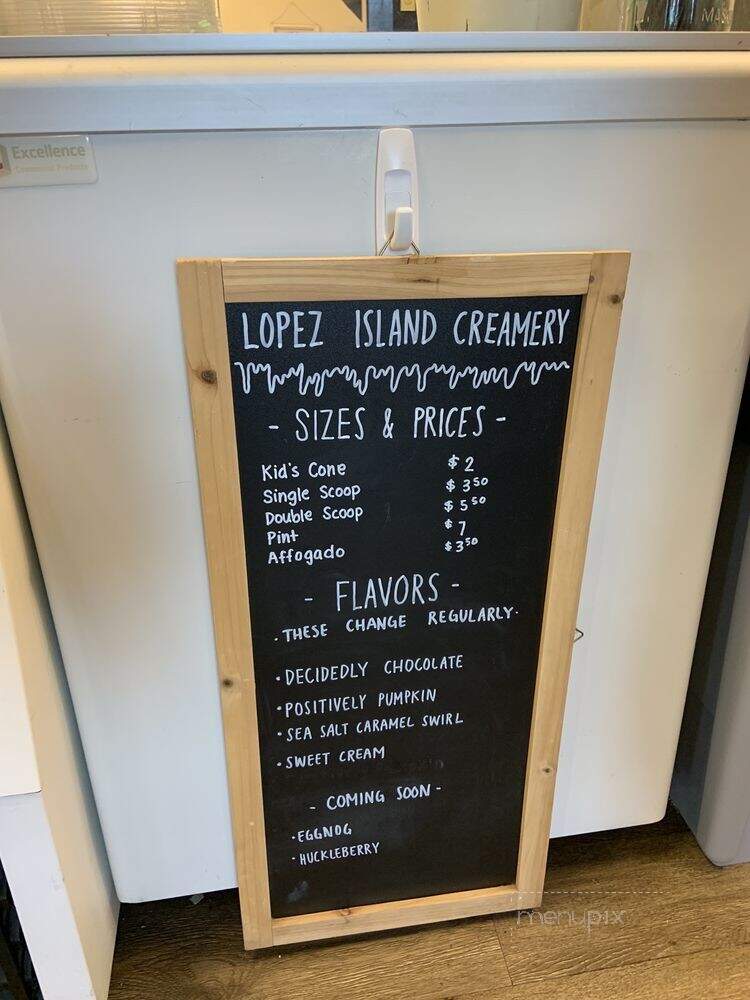 MAS
Excellence
Commercial Products
LOPEZ ISLAND CREAMERY
- SIZES & PRICES -
Kid's Cone $2
Single Scoop $3.50
Double Scoop $5.50
Pint $7
Affogado $3.50
- FLAVORS -
· THESE CHANGE REGULARLY·
· DECIDEDLY CHOCOLATE
· POSITIVELY PUMPKIN
· SEA SALT CARAMEL SWIRL
· SWEET CREAM
- COMING SOON -
· EGGNOG
· HUCKLEBERRY
menupix